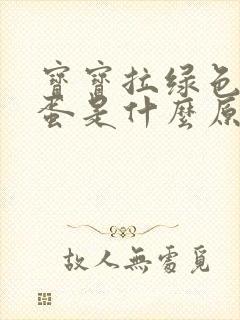 寶寶拉绿色
蛋是什麼原
故人無處覓